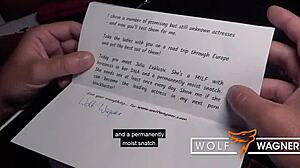 I chose a number of promising but still unknown actresses
and now you'll test them for me.
Take the ladies with you on a road trip through Europe
and get the best out of them!
Today you meet Julia Exklusiv. She's a MILF with
in her bra and a permanently moist snatch. She
needs one at least once every day. Show me she
can become the leading actress in my next porn
blockbuster!
Wolf Wagner
and a permanently
moist snatch
WOLF WAGNER